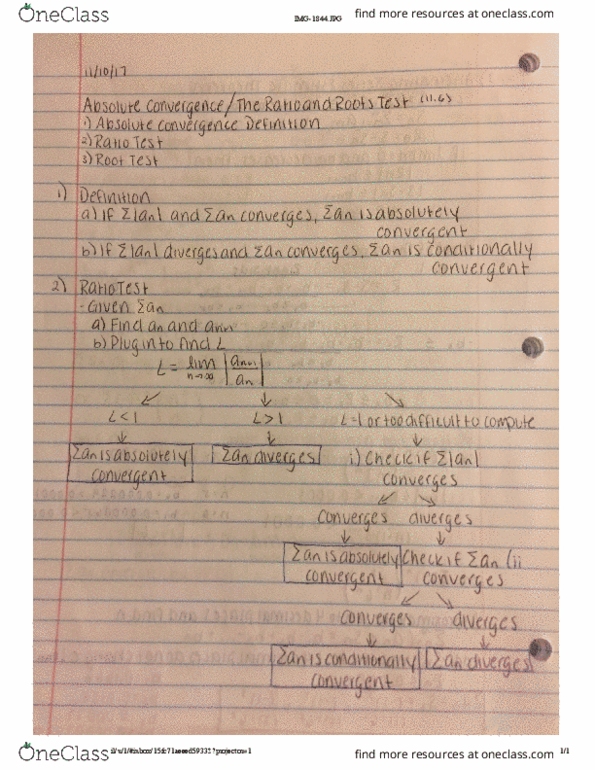 OneClass
IMG-1844.JPG
find more resources at oneclass.com
11/10/17
Absolute Convergence/The Ratio and Roots Test (11.6)
1) Absolute Convergence Definition
2) Ratio Test
3) Root Test
1) Definition
a) If Σ|an| and Σan converges, Σan is absolutely
convergent
b) If Σ|an| diverges and Σan converges, Σan is conditionally
convergent
2) Ratio Test
- Given Σan
a) Find an and an+1
b) Plug in to find L
L = lim n→∞ |an+1/an|
L<1 L>1 L=1 or too difficult to compute
Σan is absolutely convergent
Σan diverges
i) Check if Σ|an|
converges
converges diverges
Σan is absolutely convergent
Check if Σan (ii
converges
converges diverges
Σan is conditionally convergent
Σan diverges
OneClass
1/1
find more resources at oneclass.com